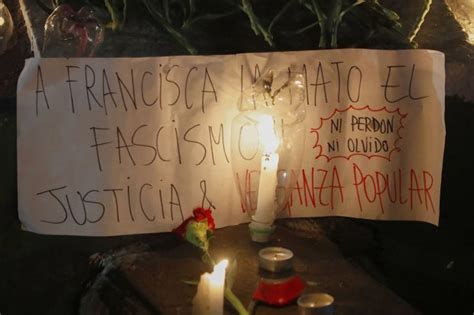 A FRANCISCA LA MATO EL
FASCISMO
NI PERDON
NI OLVIDO
JUSTICIA & VENGANZA POPULAR